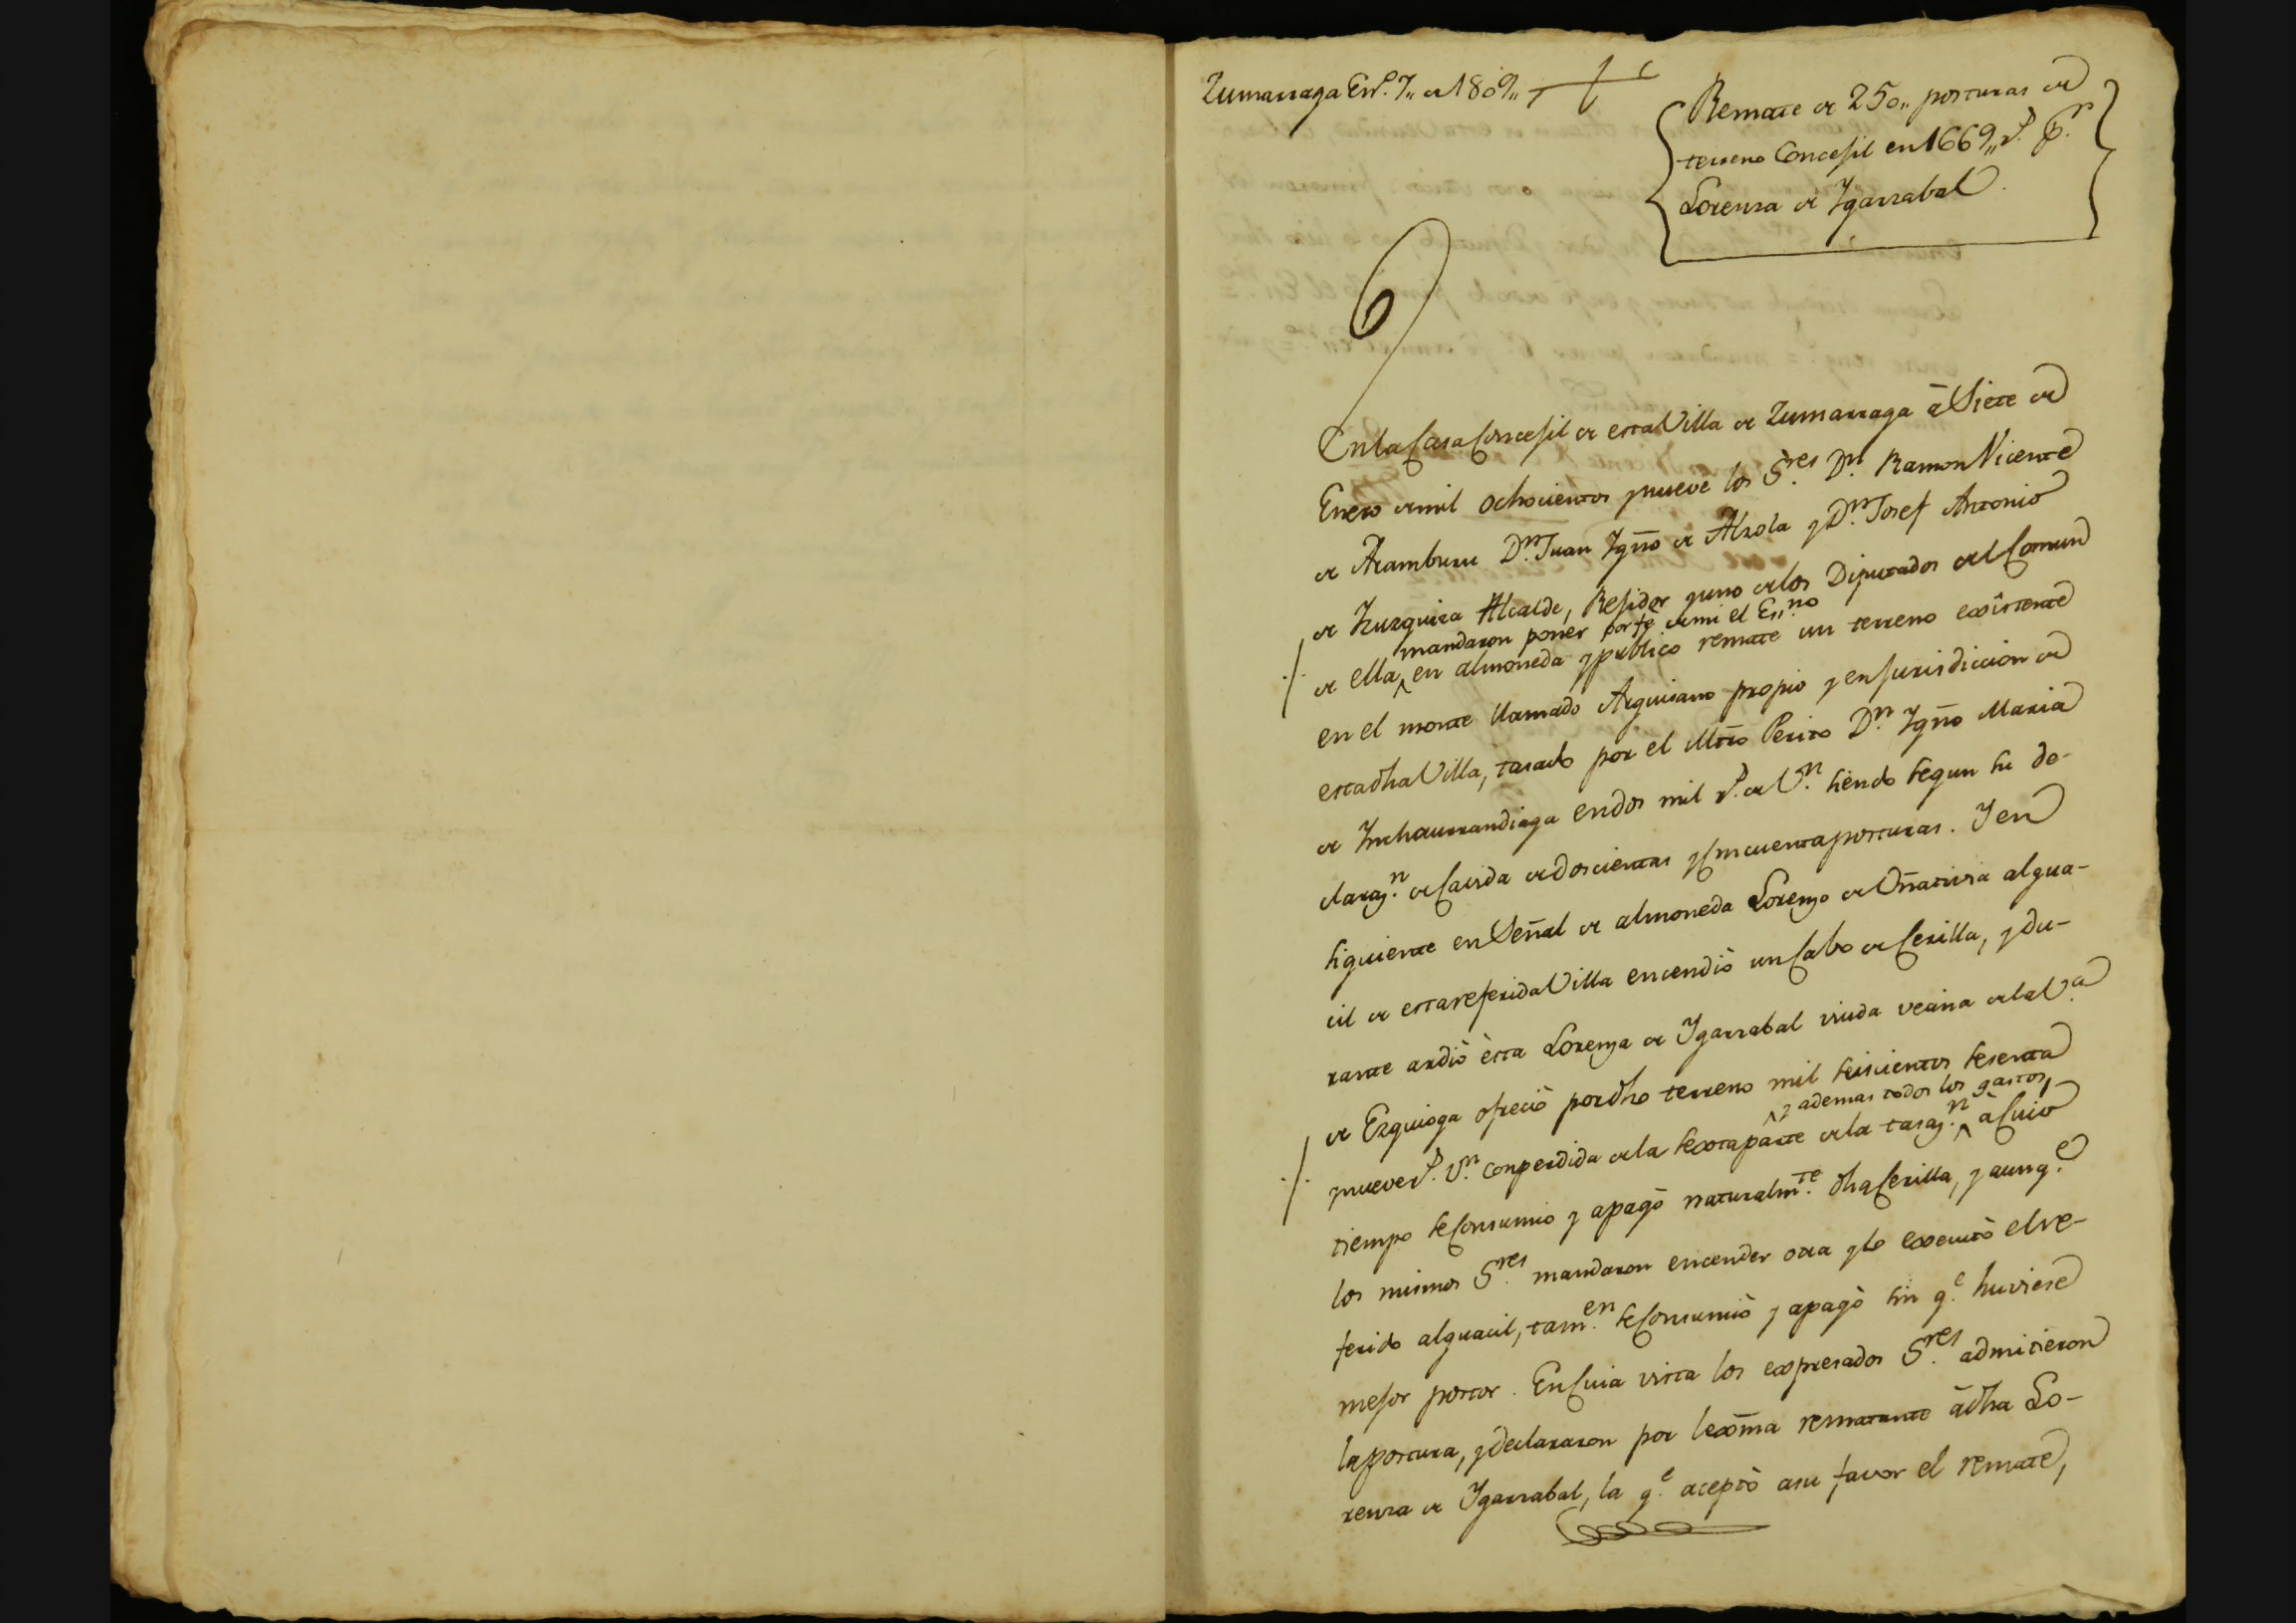 Zumarraga En.o 7,, de 1809,,
Remate de 250,, posturas de
terreno Concejil en 1669,, r.s p.r
Lorenza de Ygarzabal.
6
En la Casa Concejil de esta Villa de Zumarraga à Siete de
Enero de mil ochocientos y nueve los S.res D.n Ramon Vicente
de Aramburu D.n Juan Ygño de Alzola y D.n Josef Antonio
de Yzuzquiza Alcalde, Regidor y uno de los Diputados del Comun
mandaron poner por fe de mi el Es.no
de ella ^ en almoneda y publico remate un terreno exîstente
en el monte llamado Arguisano propio y en jurisdiccion de
esta dha Villa, tasado por el Mtro Perito D.n Ygño Maria
de Ynchaurrandiaga en dos mil r.s de V.n siendo segun su de-
claraz.n de Cavida de doscientas y Cincuenta posturas. Y en
siguiente en Señal de almoneda Lorenzo de Oñativia algua-
cil de esta referida Villa encendiò un Cabo de Cerilla, y du-
rante ardiò èsta Lorenza de Ygarzabal viuda vecina de la V.a
de Ezquioga ofreciò por dho terreno mil seiscientos sesenta
^ y ademas todos los gastos,
y nueve r.s V.n con perdida de la sexta parte de la tasaz.n ^ à Cuio
tiempo se Consumio y apagò naturalm.te dha Cerilla, y aunq.e
los mismos S.res mandaron encender otra y lo executò el re-
ferido alguacil, tam.en se Consumiò y apagò sin q.e huviese
mejor postor. En Cuia vista los expresados S.res admitieron
la postura, y declararon por lexma rematante à dha Lo-
renza de Ygarzabal, la q.e aceptò a su favor el remate,